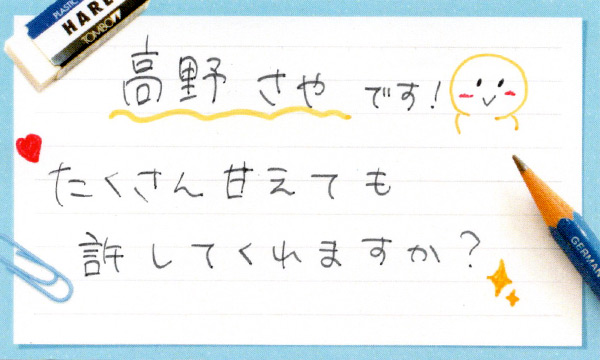 PLASTIC
HARD
TOMBOW
高野 さや です!
たくさん甘えても
許してくれますか?
GERMAN